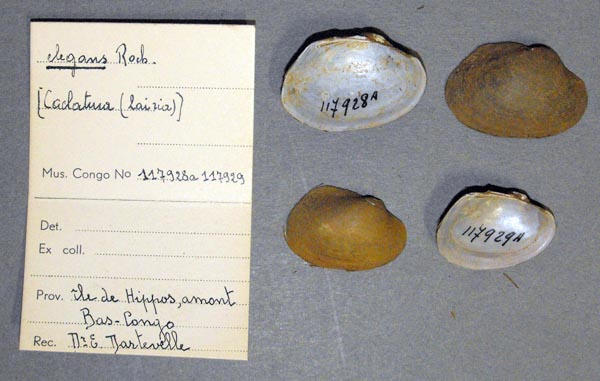 elegans Roch.
[Caelatura (Laisia)]
Mus. Congo No 117928a 117929
Det.
Ex coll.
Prov. Ile de Hippos, amont
Bas-Congo
Rec. Dr E. Dartevelle
117928A
117929A